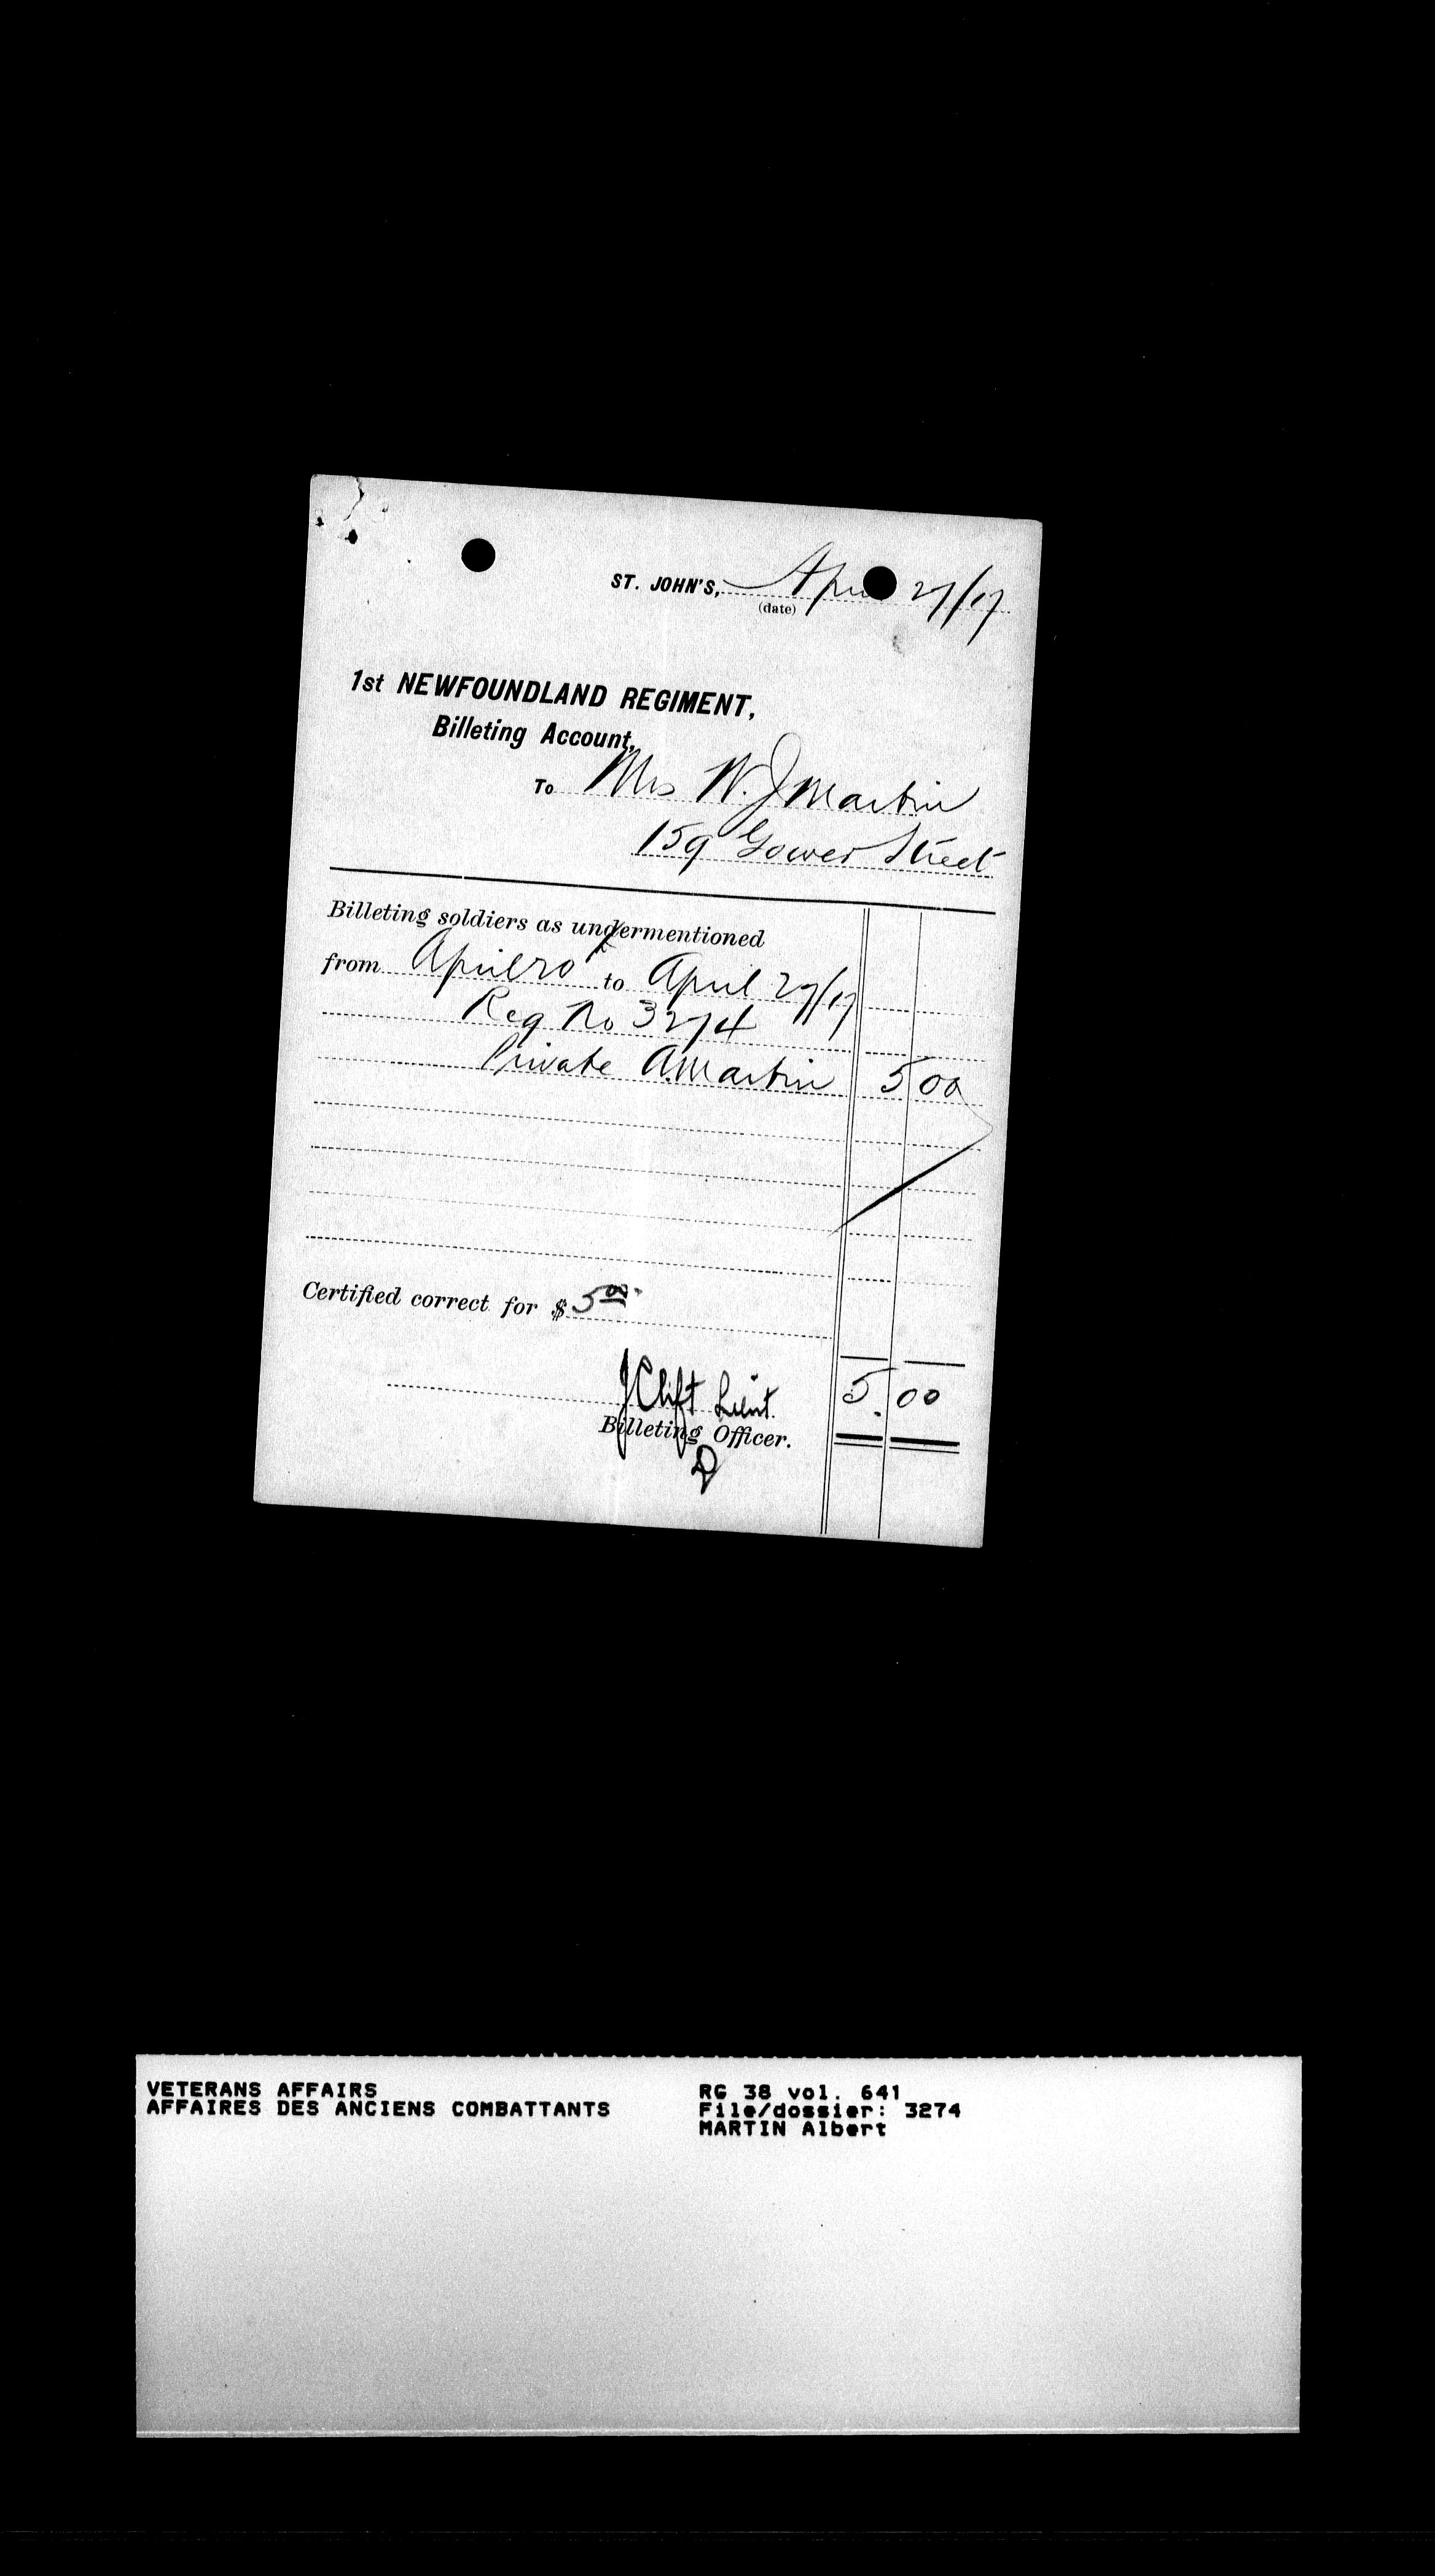 ST. JOHN'S, April 27/17
(date)
1st NEWFOUNDLAND REGIMENT,
Billeting Account,
To Mrs W. J Martin
159 Gower Street
Billeting soldiers as undermentioned
from April 20 to April 27/17
Reg No 3274
Private A. Martin 5 00
Certified correct for $ 5 00
J Clift Lieut. 5.00
Billeting Officer.
VETERANS AFFAIRS
AFFAIRES DES ANCIENS COMBATTANTS
RG 38 vol. 641
File/dossier: 3274
MARTIN Albert